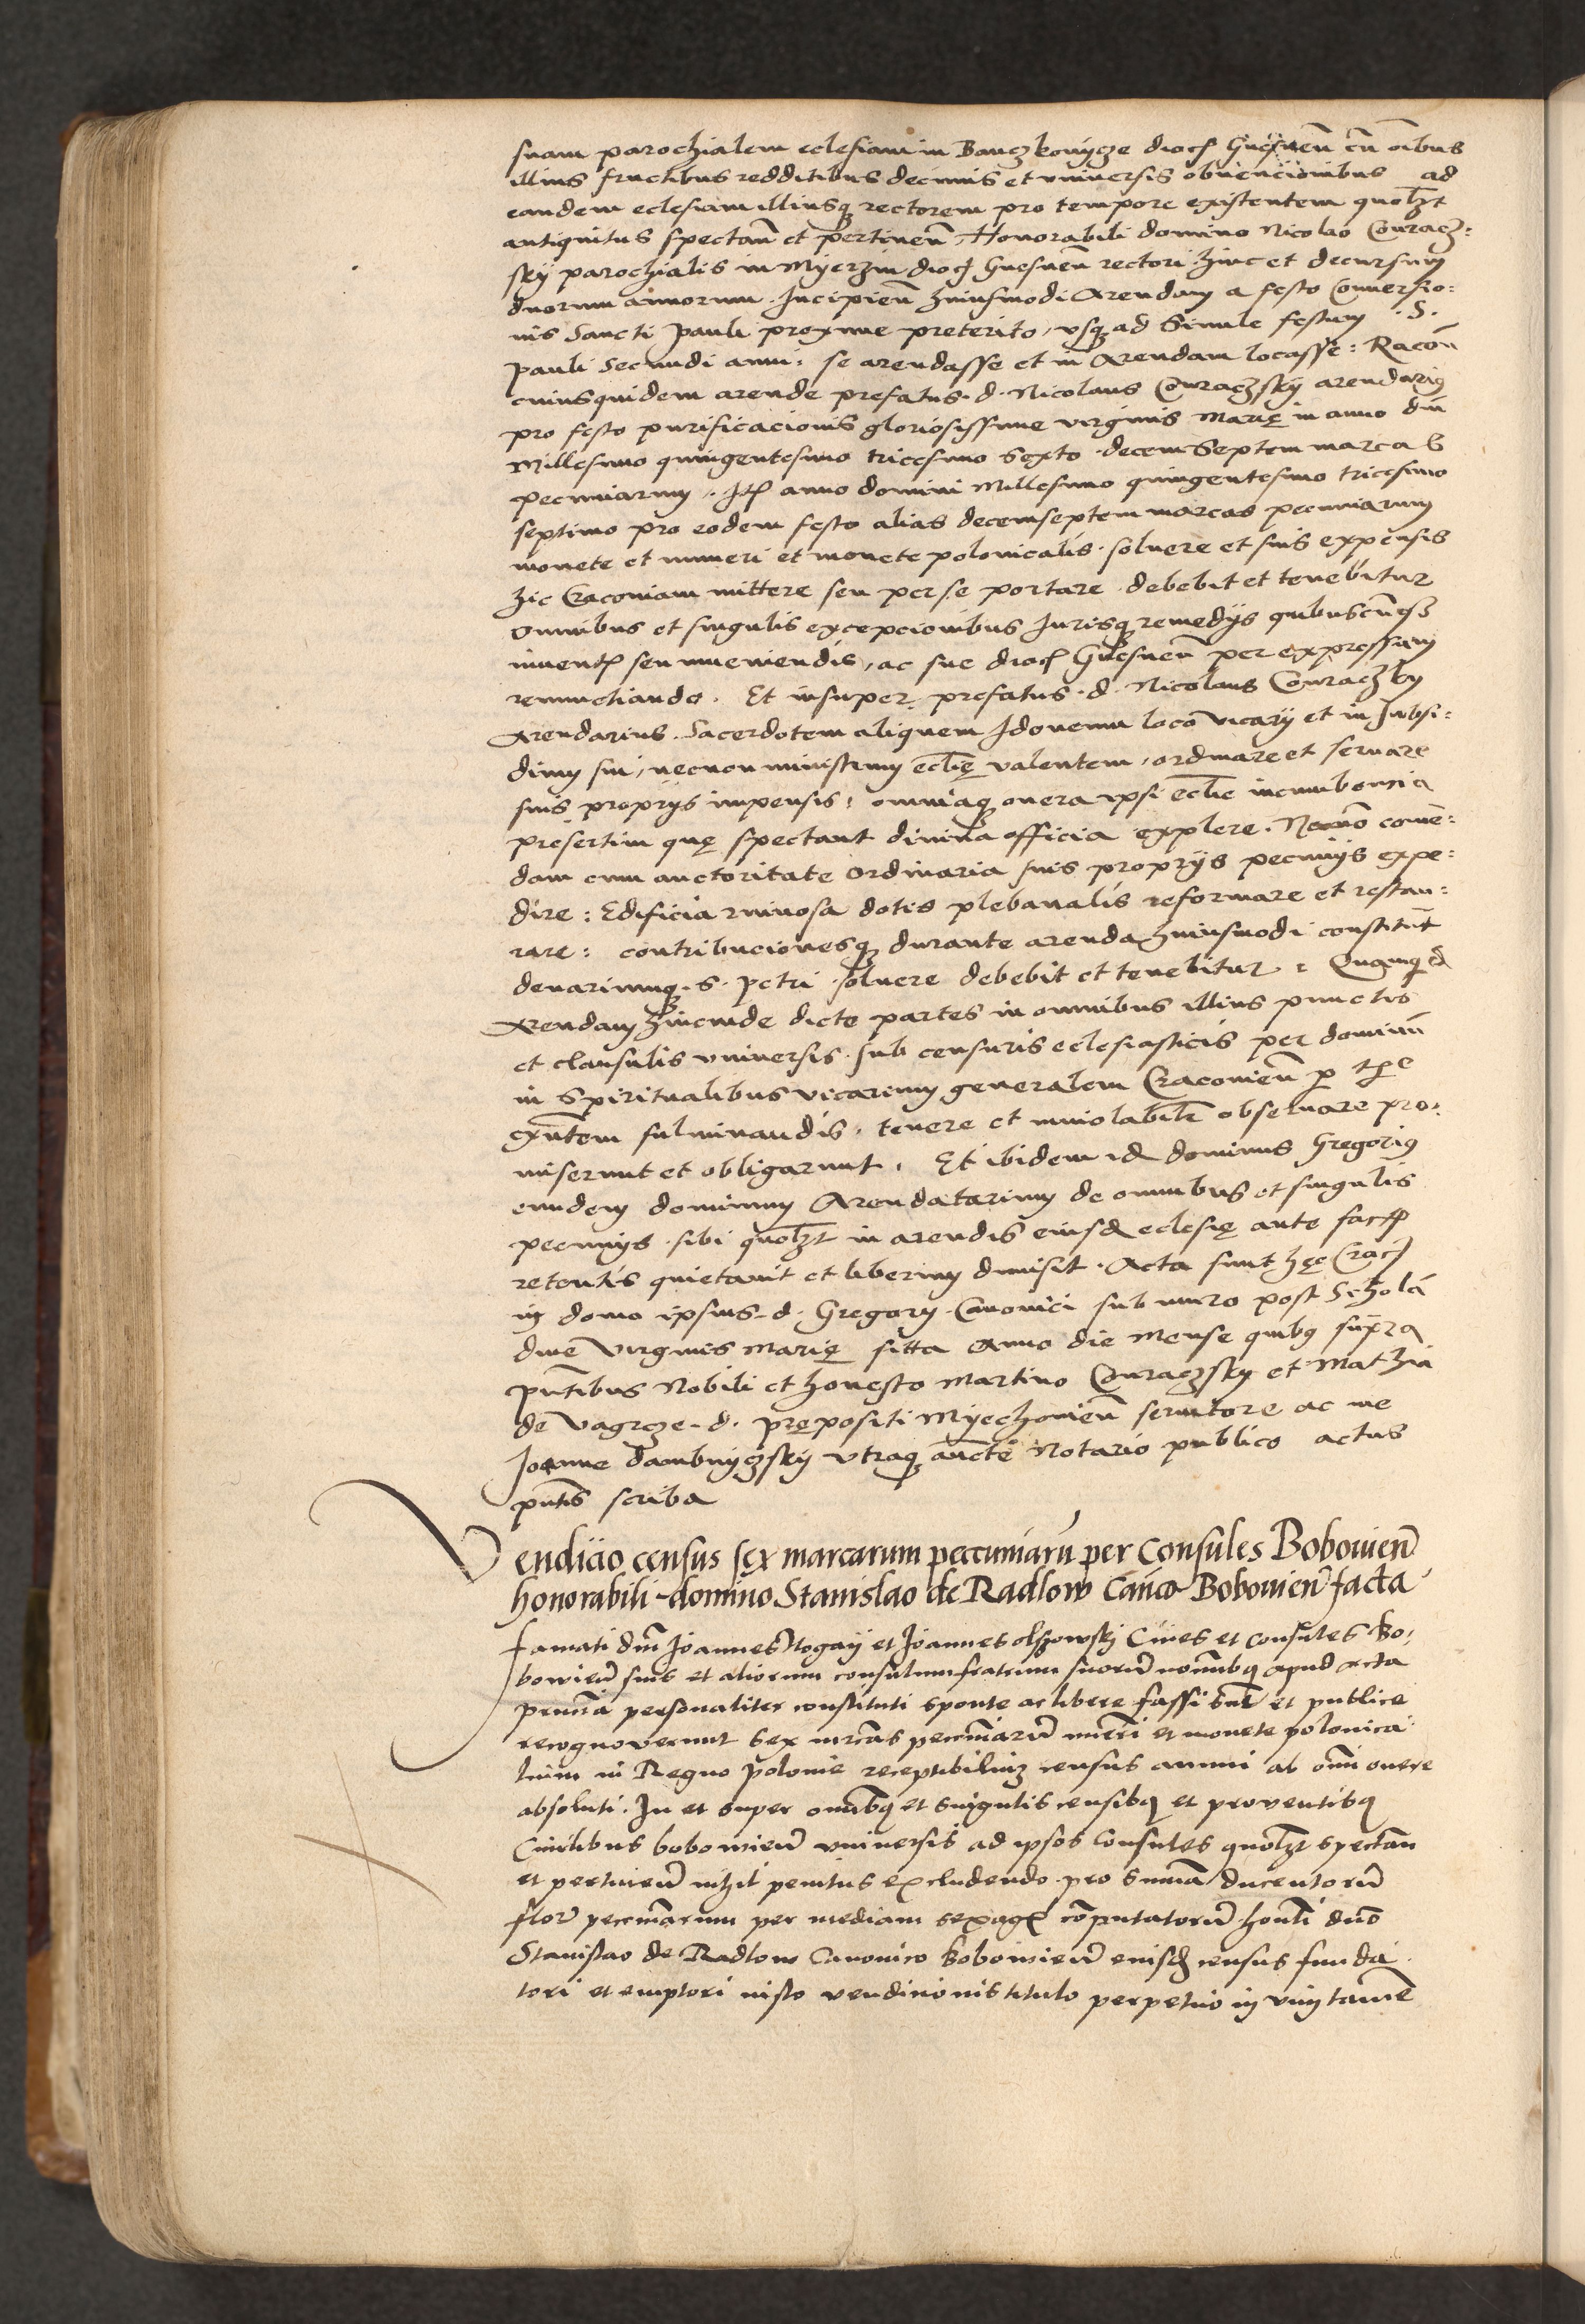 suam parochialem eclesiam in Banczkowycze dioc Gnesnen cu oibus
illius fructibus redditibus decimis et vniuersis obuencionibus ad
eandem eclesiam illiusq rectorem pro tempore existentem quolzt
antiquitus spectan et pertinen, Honorabili domino Nicolao Conracz:
sky parochialis in Myerzin dioc Gnesnen rectori hinc et decursum
duorum annorum. Incipien huiusmodi Arendam a festo Conuersio:
nis Sancti Pauli proxime preterito, vsq ad Simile festum .S.
Pauli Secundi anni: se arendasse et in Arendam locasse: Racon
cuiusquidem arende prefatus .d. Nicolaus Conraczsky arendarius
pro festo purificacionis gloriosissime virginis Marię in anno din
Millesimo quingentesimo tricesimo Sexto decem Septem marcas
pecuniarum. It anno domini Millesimo quingentesimo tricesimo
septimo pro eodem festo alias decemseptem marcas pecuniarum
monete et numeri et monete polonicalis. soluere et suis expensis
hic Cracouiam mittere seu per se portare debebit et tenebitur
Omnibus et singulis excepcionibus Iurisq remedijs quibuscunq
inuent seu inueniendis, ac sue dioc Gnesnen per expressum
renunctiando. Et insuper prefatus .d. Nicolaus Conraczky
Arendarius. Sacerdotem aliquem Idoneum loco vicarij et in subsi:
dium sui, necnon ministrum ecclię valentem, ordinare et seruare
suis proprijs impensis: omniaq onera ipsi ecclie incumbencia
presertim quę spectant diuina officia explere. Necno come:
dam cum auctoritate Ordinaria suis proprijs pecunijs expe:
dire: Edificia ruinosa dotis plebanalis reformare et restau:
rare: contribucionesq durante arenda huiusmodi constitut
denariumq .S. Petri soluere debebit et tenebitur: Quamq
Arendam huiuscemodi dicte partes in omnibus illius punctis
et clausulis vniuersis. sub censuris eclesiasticis per dominu
in Spiritualibus vicarium generalem Cracouien p tpe
exntem fulminandis, tenere et inuiolabilr obseruare pro:
miserunt et obligarunt. Et ibidem id dominus Gregorius
eundem dominum Arendatarium de omnibus et singulis
pecunijs sibi quolzt in arendis eiusd eclesię ante fact
retentis quietauit et liberum dimisit. Acta sunt hęc Crac
in domo ipsius .d. Gregorij Canonici sub muro post Schola
diue Virginis Marię sitta Anno die Mense quibus supra
pntibus Nobili et honesto Martino Conraczsky et Mathia
de Vagrcze .d. prępositi Myechouien seruitore ac me
Joanne Dambnyczsky vtraq aucte Notario publico actus
pntis scriba
Vendicio census sex marcarum peccuniaru per Consules Bobouien
honorabili domino Stanislao de Radlow Canco Bobouien facta
Famati dni Joannes Rogaij et Joannes olssowskj Ciues et consules Bo:
bowien suis et aliorum consulum fratrum suoru nominibq apud acta
prntia personaliter constituti sponte ac libere fassi sunt et publice
recognoverunt sex mrcas pecuniaru nueri et monete polonica
lium in Regno Polonie receptibilium census annui ab omi onere
absoluti. In et super omibq et singulis censibq et proventibq
Ciuilibus bobowien vniuersis ad ipsos Consules quolzt spectan
et pertinen nihil penitus excludendo pro suma ducentoru
flor pecuniarum per mediam sexag computatoru honli dno
Stanislao de Radlow Canonico Bobowien eiusd census funda
tori et emptori iusto vendicionis titulo perpetuo in vim tame